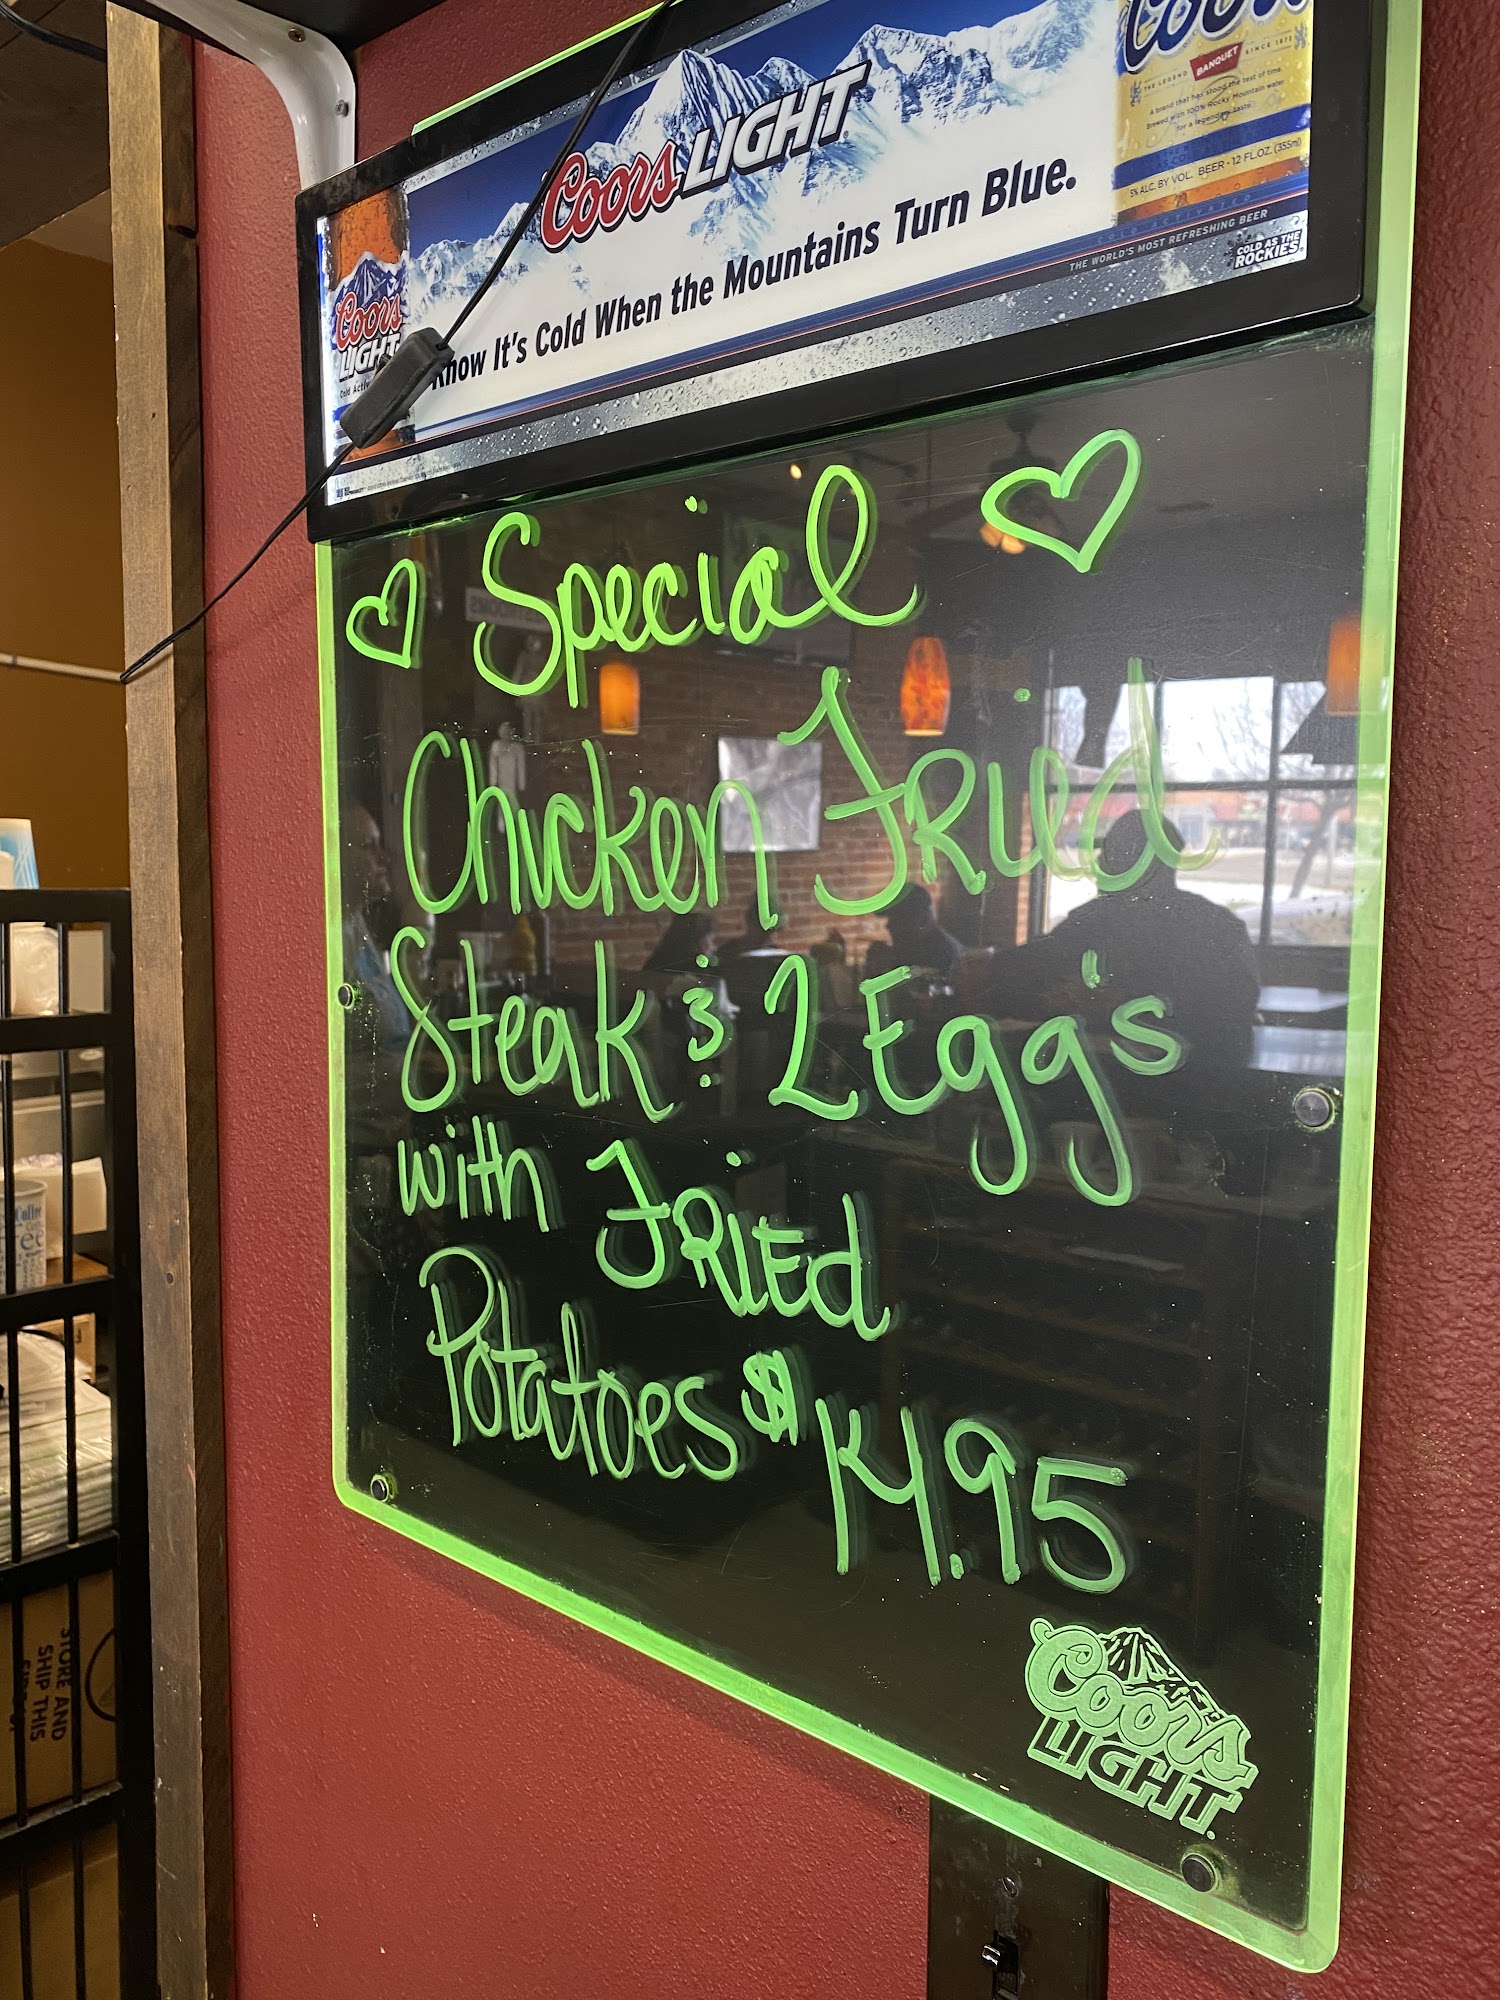 Coors
BANQUET
THE LEGEND SINCE 1873
A brand that has stood the test of time.
Brewed with 100% Rocky Mountain water
for a legendary taste.
5% ALC. BY VOL. BEER • 12 FL.OZ. (355ml)
Coors LIGHT
Know It's Cold When the Mountains Turn Blue.
COLD ACTIVATED
THE WORLD'S MOST REFRESHING BEER
COLD AS THE
ROCKIES
Coors
LIGHT
Cold
♡ Special ♡
Chicken Fried
Steak & 2 Egg's
with FRIEd
Potatoes $14.95
Coors
LIGHT
Coffee
STORE AND
SHIP THIS